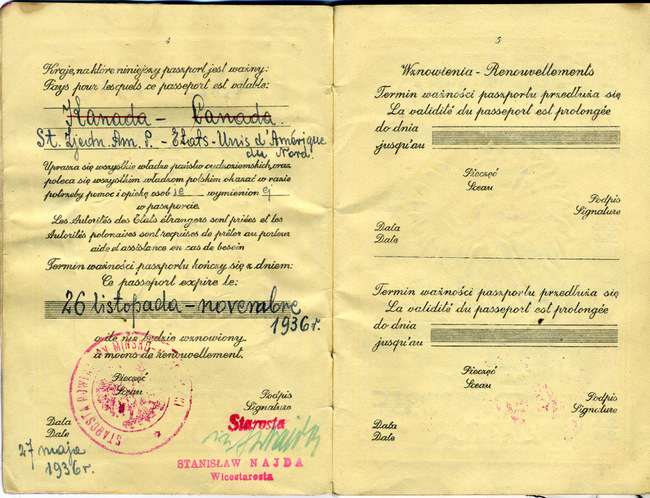 4
Kraje, na które niniejszy paszport jest ważny:
Pays pour lesquels ce passeport est valable:
Kanada - Canada.
St. Zjedn. Am. P. - États-Unis d'Amérique
du Nord.
Uprasza się wszystkie władze państw cudzoziemskich, oraz
poleca się wszystkim władzom polskim okazać w razie
potrzeby pomoc i opiekę osobie wymienionej
w paszporcie.
Les Autorités des Etats étrangers sont priées et les
Autorités polonaises sont requises de prêter au porteur
aide et assistance en cas de besoin
Termin ważności paszportu kończy się z dniem:
Ce passeport expire le:
26 listopada - novembre
1936 r.
o ile nie będzie wznowiony
à moins de renouvellement.
STAROSTA POWIATOWY MIŃSKO-
Pieczęć
Sceau
Podpis
Signature
Data
Date
27 maja
1936 r.
Starosta
STANISŁAW NAJDA
Wicestarosta
5
Wznowienia - Renouvellements
Termin ważności paszportu przedłuża się
La validité du passeport est prolongée
do dnia
jusqu'au
Pieczęć
Sceau
Podpis
Signature
Data
Date
Termin ważności paszportu przedłuża się
La validité du passeport est prolongée
do dnia
jusqu'au
Pieczęć
Sceau
Podpis
Signature
Data
Date